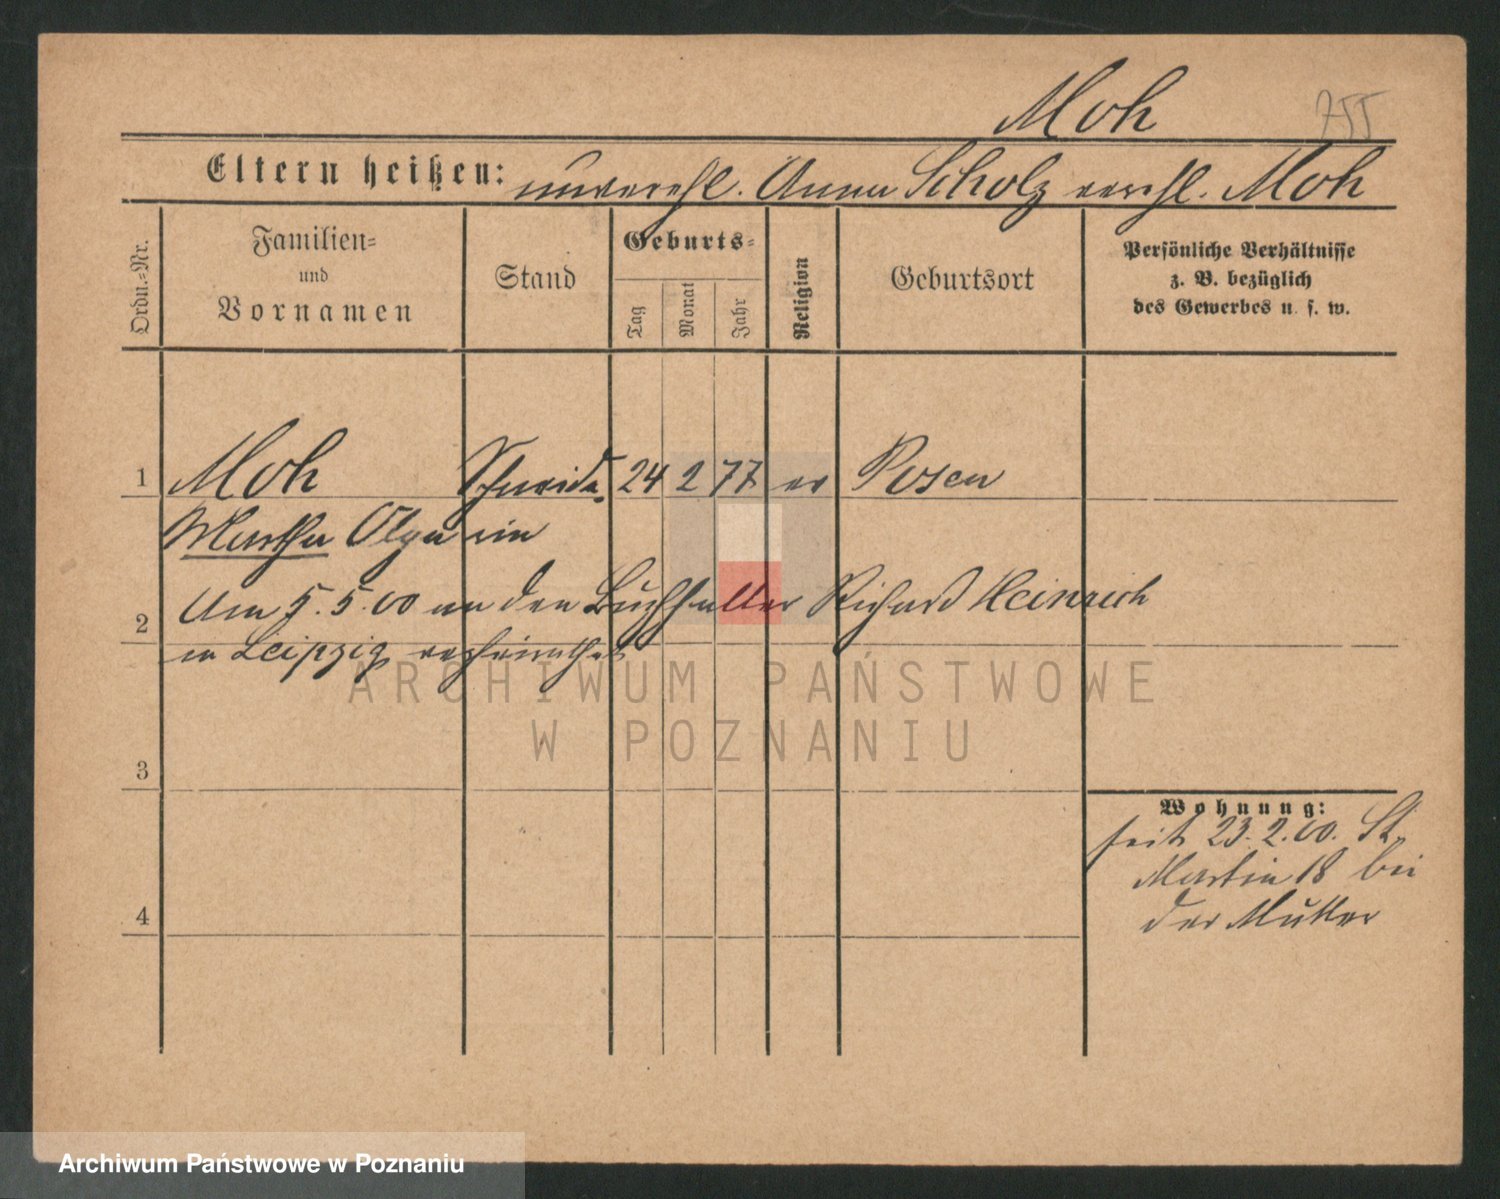 Moh
755
Eltern heißen: unverehl. Anna Scholz verehl. Moh
Ordn.=Nr.
Familien=
und
Vornamen
Stand
Geburts=
Tag
Monat
Jahr
Religion
Geburtsort
Persönliche Verhältnisse
z. B. bezüglich
des Gewerbes u. s. w.
1 Moh Schneide 24 2 77 ev Posen
Martha Olga rin
2 Am 5.5.00 an den Buchhalter Richard Heinrich
in Leipzig verheirathet
ARCHIWUM PAŃSTWOWE
W POZNANIU
3
Wohnung:
seit 23.2.00. St.
Martin 18 bei
der Mutter
4
Archiwum Państwowe w Poznaniu